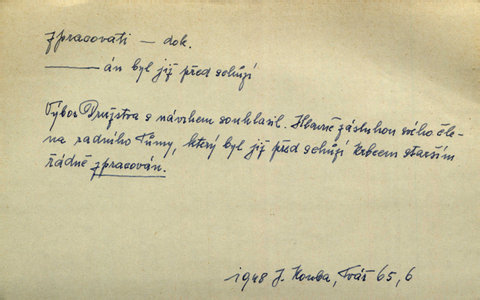 zpracovati — dok.
——— án byl již před schůzí
Výbor Družstva s návrhem souhlasil. Hlavně zásluhou svého čle-
na radního Tůmy, který byl již před schůzí Krbcem starším
řádně zpracován.
1948 J. Kouba, Tvář 65, 6